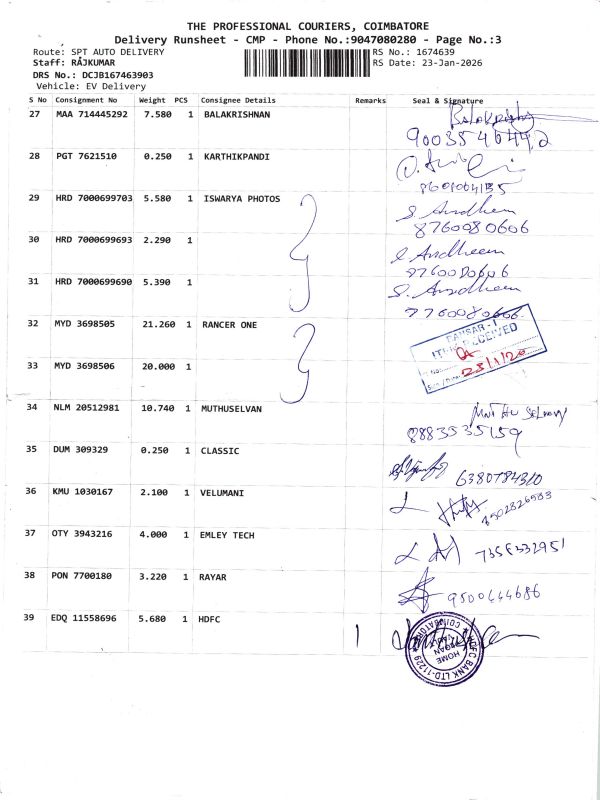 THE PROFESSIONAL COURIERS, COIMBATORE
Delivery Runsheet - CMP - Phone No.:9047080280 - Page No.:3
Route: SPT AUTO DELIVERY
RS No.: 1674639
Staff: RAJKUMAR
RS Date: 23-Jan-2026
DRS No.: DCJB167463903
Vehicle: EV Delivery
S No Consignment No Weight PCS Consignee Details Remarks Seal & Signature
27 MAA 714445292 7.580 1 BALAKRISHNAN
28 PGT 7621510 0.250 1 KARTHIKPANDI
29 HRD 7000699703 5.580 1 ISWARYA PHOTOS
8760080606
30 HRD 7000699693 2.290 1
31 HRD 7000699690 5.390 1
32 MYD 3698505 21.260 1 RANCER ONE
33 MYD 3698506 20.000 1
34 NLM 20512981 10.740 1 MUTHUSELVAN
8883535159
35 DUM 309329 0.250 1 CLASSIC
6380784310
36 KMU 1030167 2.100 1 VELUMANI
37 OTY 3943216 4.000 1 EMLEY TECH
7358332951
38 PON 7700180 3.220 1 RAYAR
39 EDQ 11558696 5.680 1 HDFC